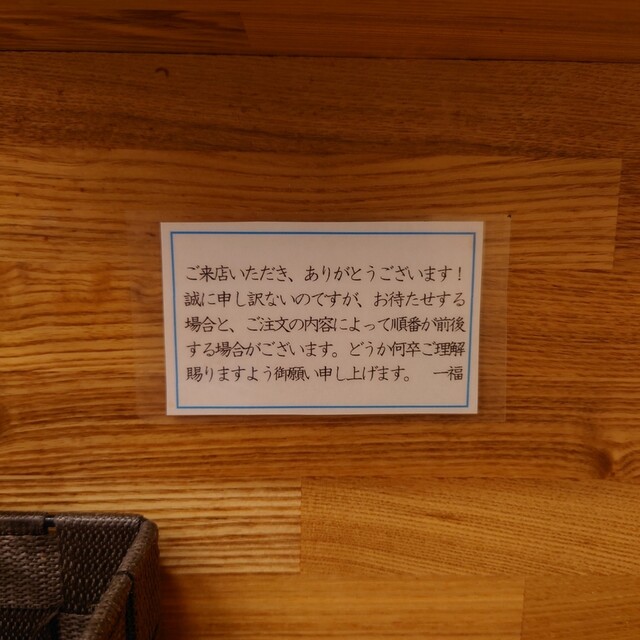 ご来店いただき、ありがとうございます！
誠に申し訳ないのですが、お待たせする
場合と、ご注文の内容によって順番が前後
する場合がございます。どうか何卒ご理解
賜りますよう御願い申し上げます。　一福